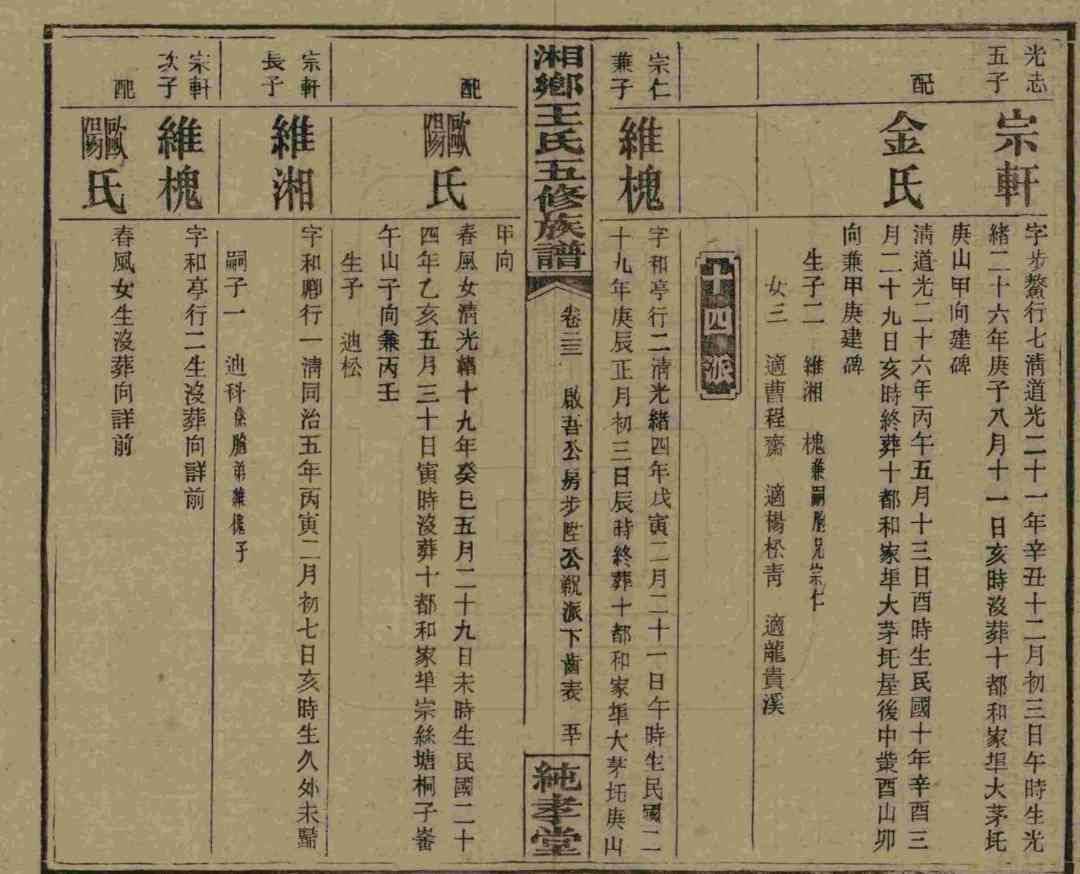 光志
五子
宗軒
字步鰲行七清道光二十一年辛丑十二月初三日午時生光
緒二十六年庚子八月十一日亥時沒葬十都和家埠大茅坵
庚山甲向建碑
配
金氏
清道光二十六年丙午五月十三日酉時生民國十年辛酉三
月二十九日亥時終葬十都和家埠大茅坵屋後中塋酉山卯
向兼甲庚建碑
生子二 維湘 槐兼嗣胞兄宗仁
女三 適曹程齋 適楊松青 適龍貴溪
十四派
宗仁
兼子
維槐
字和亭行二清光緒四年戊寅二月二十一日午時生民國二
十九年庚辰正月初三日辰時終葬十都和家埠大茅坵庚山
湘鄉王氏五修族譜
卷三三 啟吾公房步陞公親派下齒表 五十
純孝堂
甲向
配
歐陽氏
春風女清光緒十九年癸巳五月二十九日未時生民國二十
四年乙亥五月三十日寅時沒葬十都和家埠宗絲塘桐子崙
午山子向兼丙壬
生子 迪松
宗軒
長子
維湘
字和卿行一清同治五年丙寅二月初七日亥時生久外未歸
嗣子一 迪科係胞弟維槐子
宗軒
次子
維槐
字和亭行二生沒葬向詳前
配
歐陽氏
春風女生沒葬向詳前